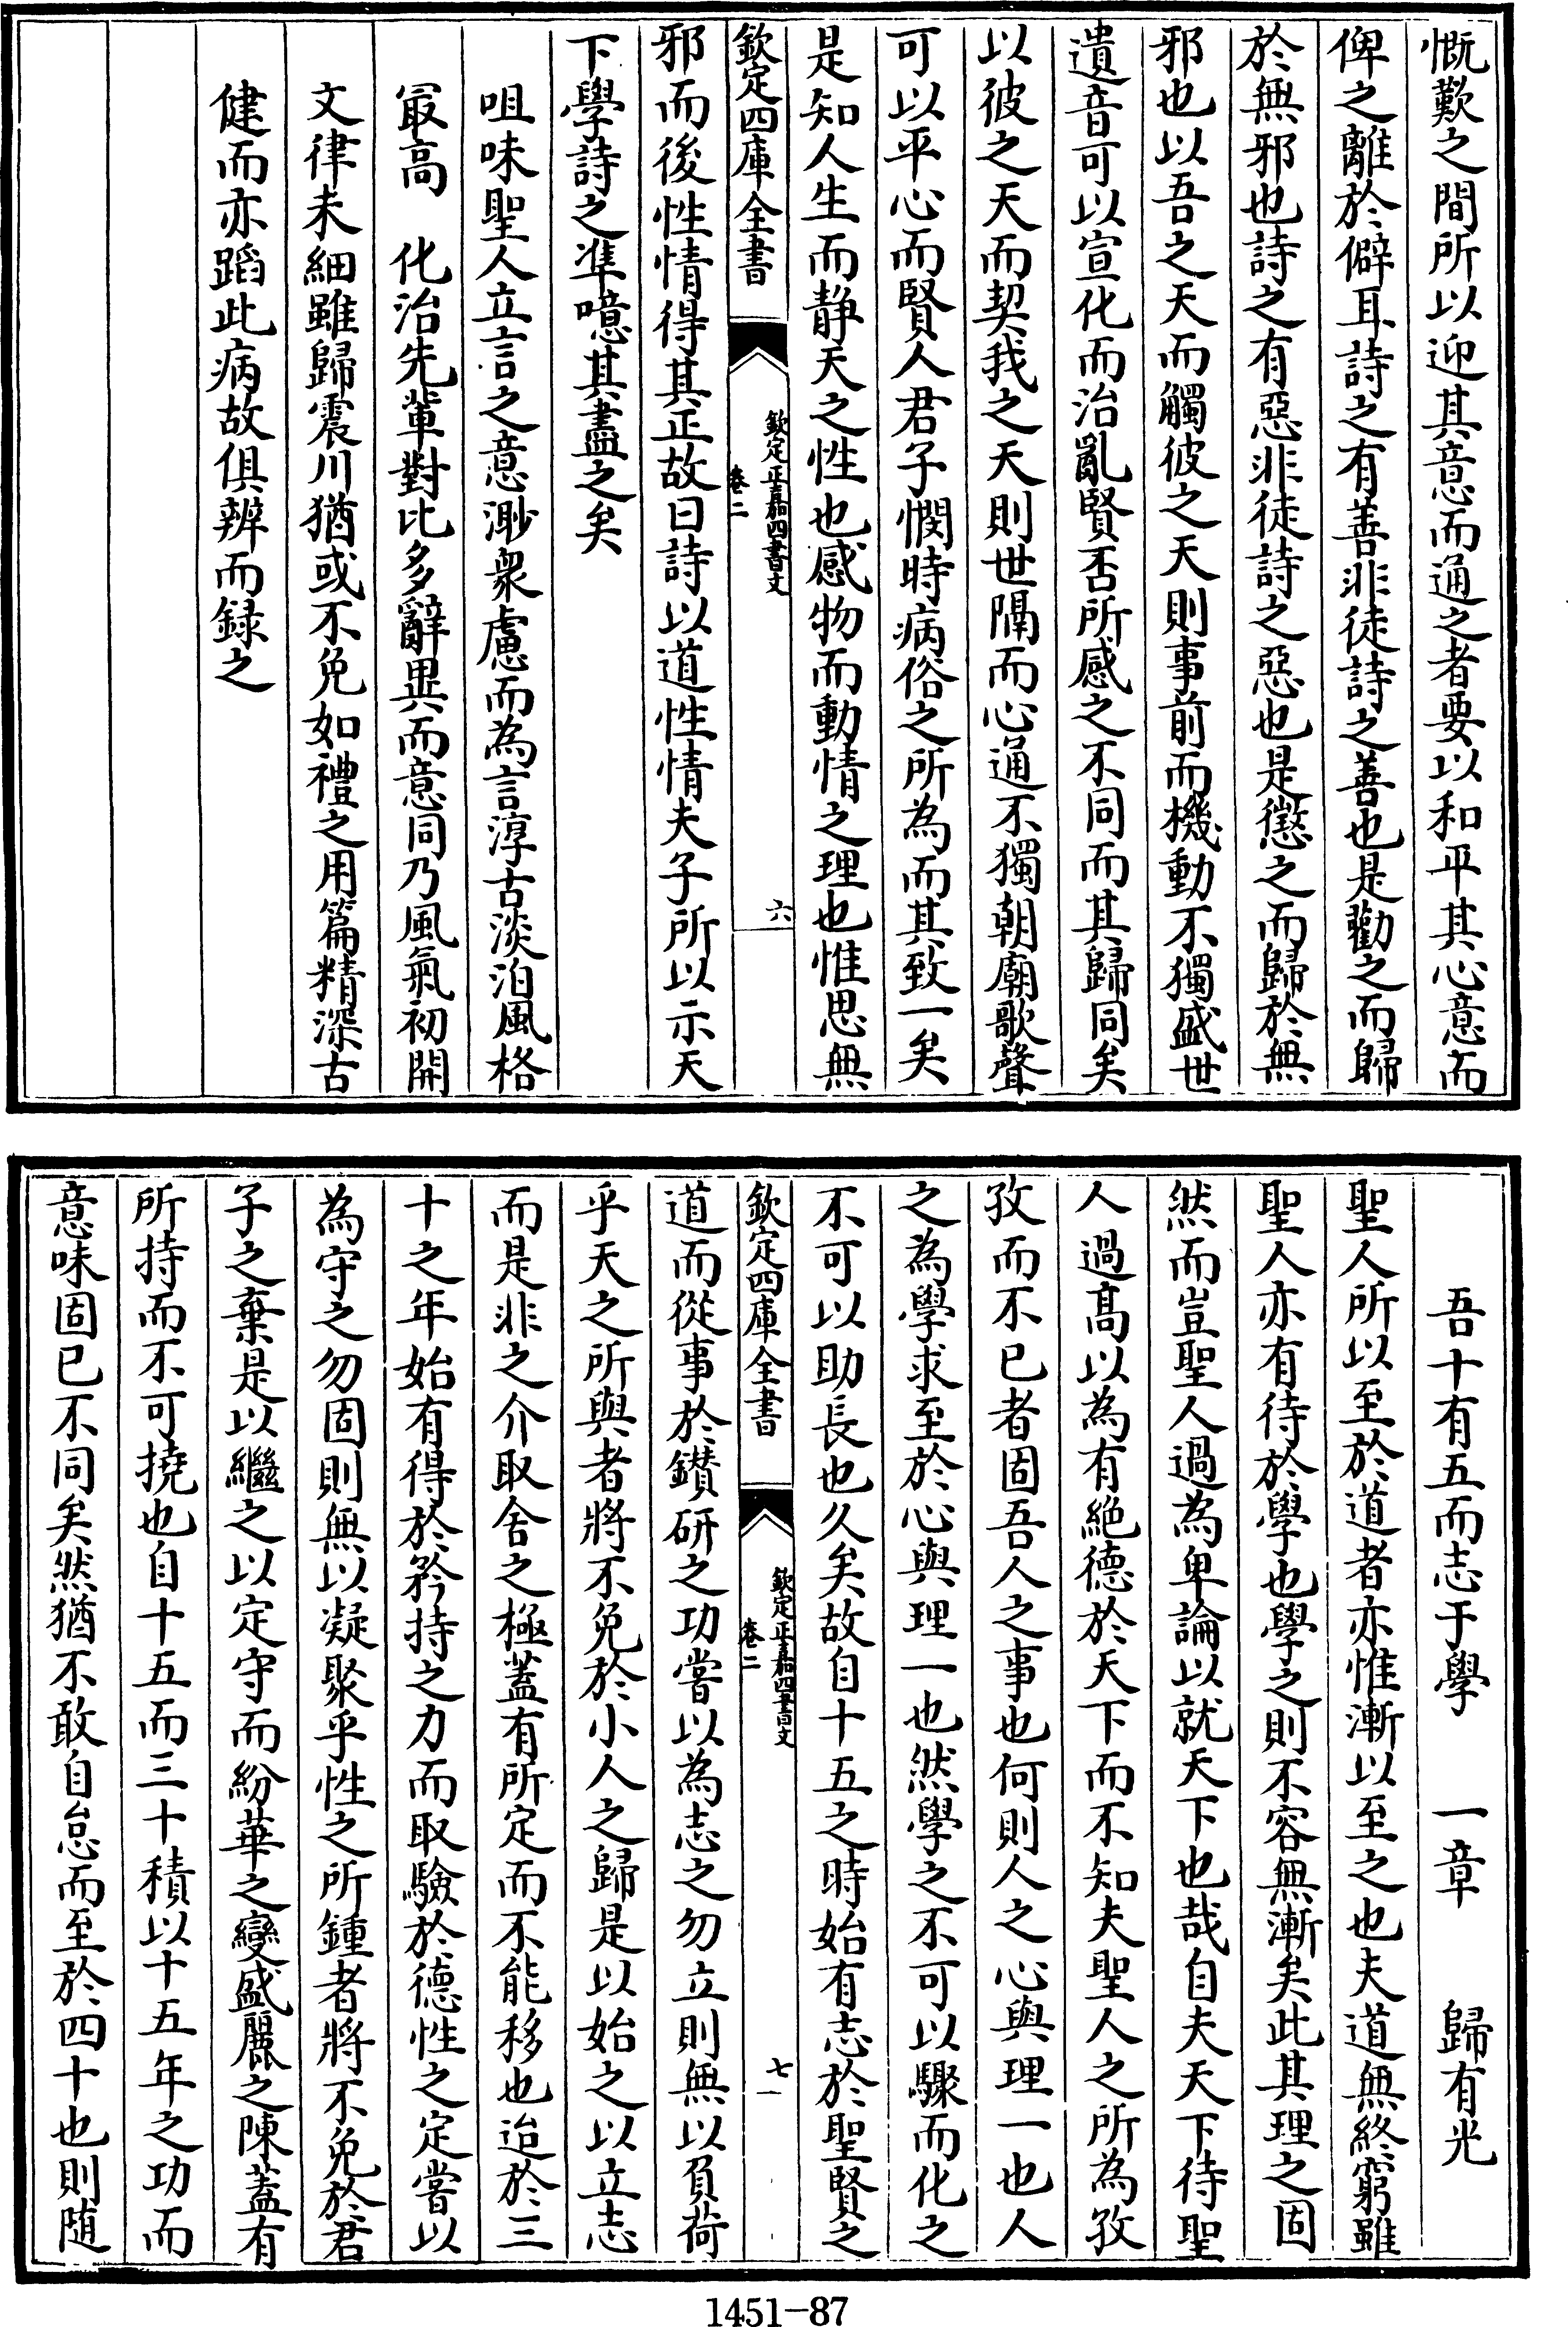 慨歎之間所以迎其意而通之者要以和平其心意而
俾之離於僻耳詩之有善非徒詩之善也是勸之而歸
於無邪也詩之有惡非徒詩之惡也是懲之而歸於無
邪也以吾之天而觸彼之天則事前而機動不獨盛世
遺音可以宣化而治亂賢否所感之不同而其歸同矣
以彼之天而契我之天則世隔而心通不獨朝廟歌聲
可以平心而賢人君子憫時病俗之所為而其致一矣
是知人生而静天之性也感物而動情之理也惟思無
欽定四庫全書
欽定正嘉四書文
卷二
六
邪而後性情得其正故曰詩以道性情夫子所以示天
下學詩之準噫其盡之矣
咀味聖人立言之意渺衆慮而為言淳古淡泊風格
最高　化治先輩對比多辭異而意同乃風氣初開
文律未細雖歸震川猶或不免如禮之用篇精深古
健而亦蹈此病故俱辨而録之
吾十有五而志于學　一章　歸有光
聖人所以至於道者亦惟漸以至之也夫道無終窮雖
聖人亦有待於學也學之則不容無漸矣此其理之固
然而豈聖人過為卑論以就天下也哉自夫天下待聖
人過高以為有絶德於天下而不知夫聖人之所為孜
孜而不已者固吾人之事也何則人之心與理一也人
之為學求至於心與理一也然學之不可以驟而化之
不可以助長也久矣故自十五之時始有志於聖賢之
欽定四庫全書
欽定正嘉四書文
卷二
七
道而從事於鑽研之功嘗以為志之勿立則無以負荷
乎天之所與者將不免於小人之歸是以始之以立志
而是非之介取舍之極蓋有所定而不能移也迨於三
十之年始有得於矜持之力而取驗於德性之定嘗以
為守之勿固則無以凝聚乎性之所鍾者將不免於君
子之棄是以繼之以定守而紛華之變盛麗之陳蓋有
所持而不可撓也自十五而三十積以十五年之功而
意味固已不同矣然猶不敢自怠而至於四十也則随
1451-87